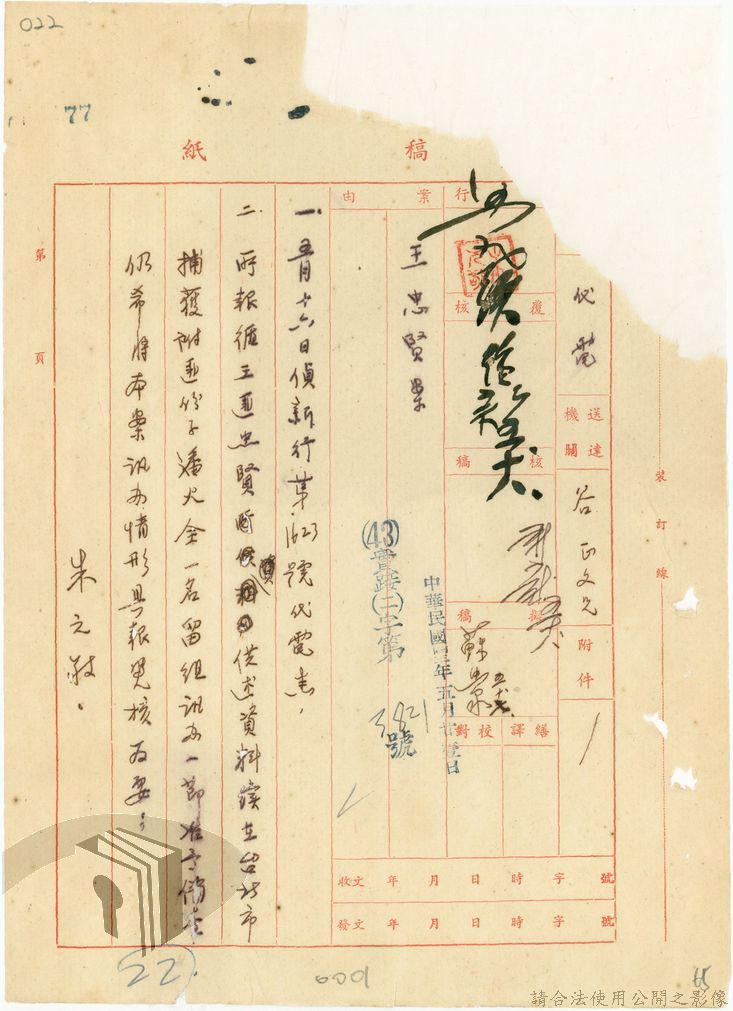 022
77
稿紙
代電
送達機關
谷正文先
附件
行
覆核
核稿
擬稿
繕譯 校對
案由
王忠賢案
中華民國四三年五月廿壹日
(43)實踐(二)字第3821號
收文 年 月 日 時 字 號
發文 年 月 日 時 字 號
一、五月十六日偵新行第1623號代電悉,
二、所報循王匪忠賢所供述資料續在台北市
捕獲附匪份子潘火全一名留組訊办一節准予備查
仍希將本案訊办情形具報覓核為要;
朱元敬。
第 頁
裝訂線
22
000
65
請合法使用公開之影像